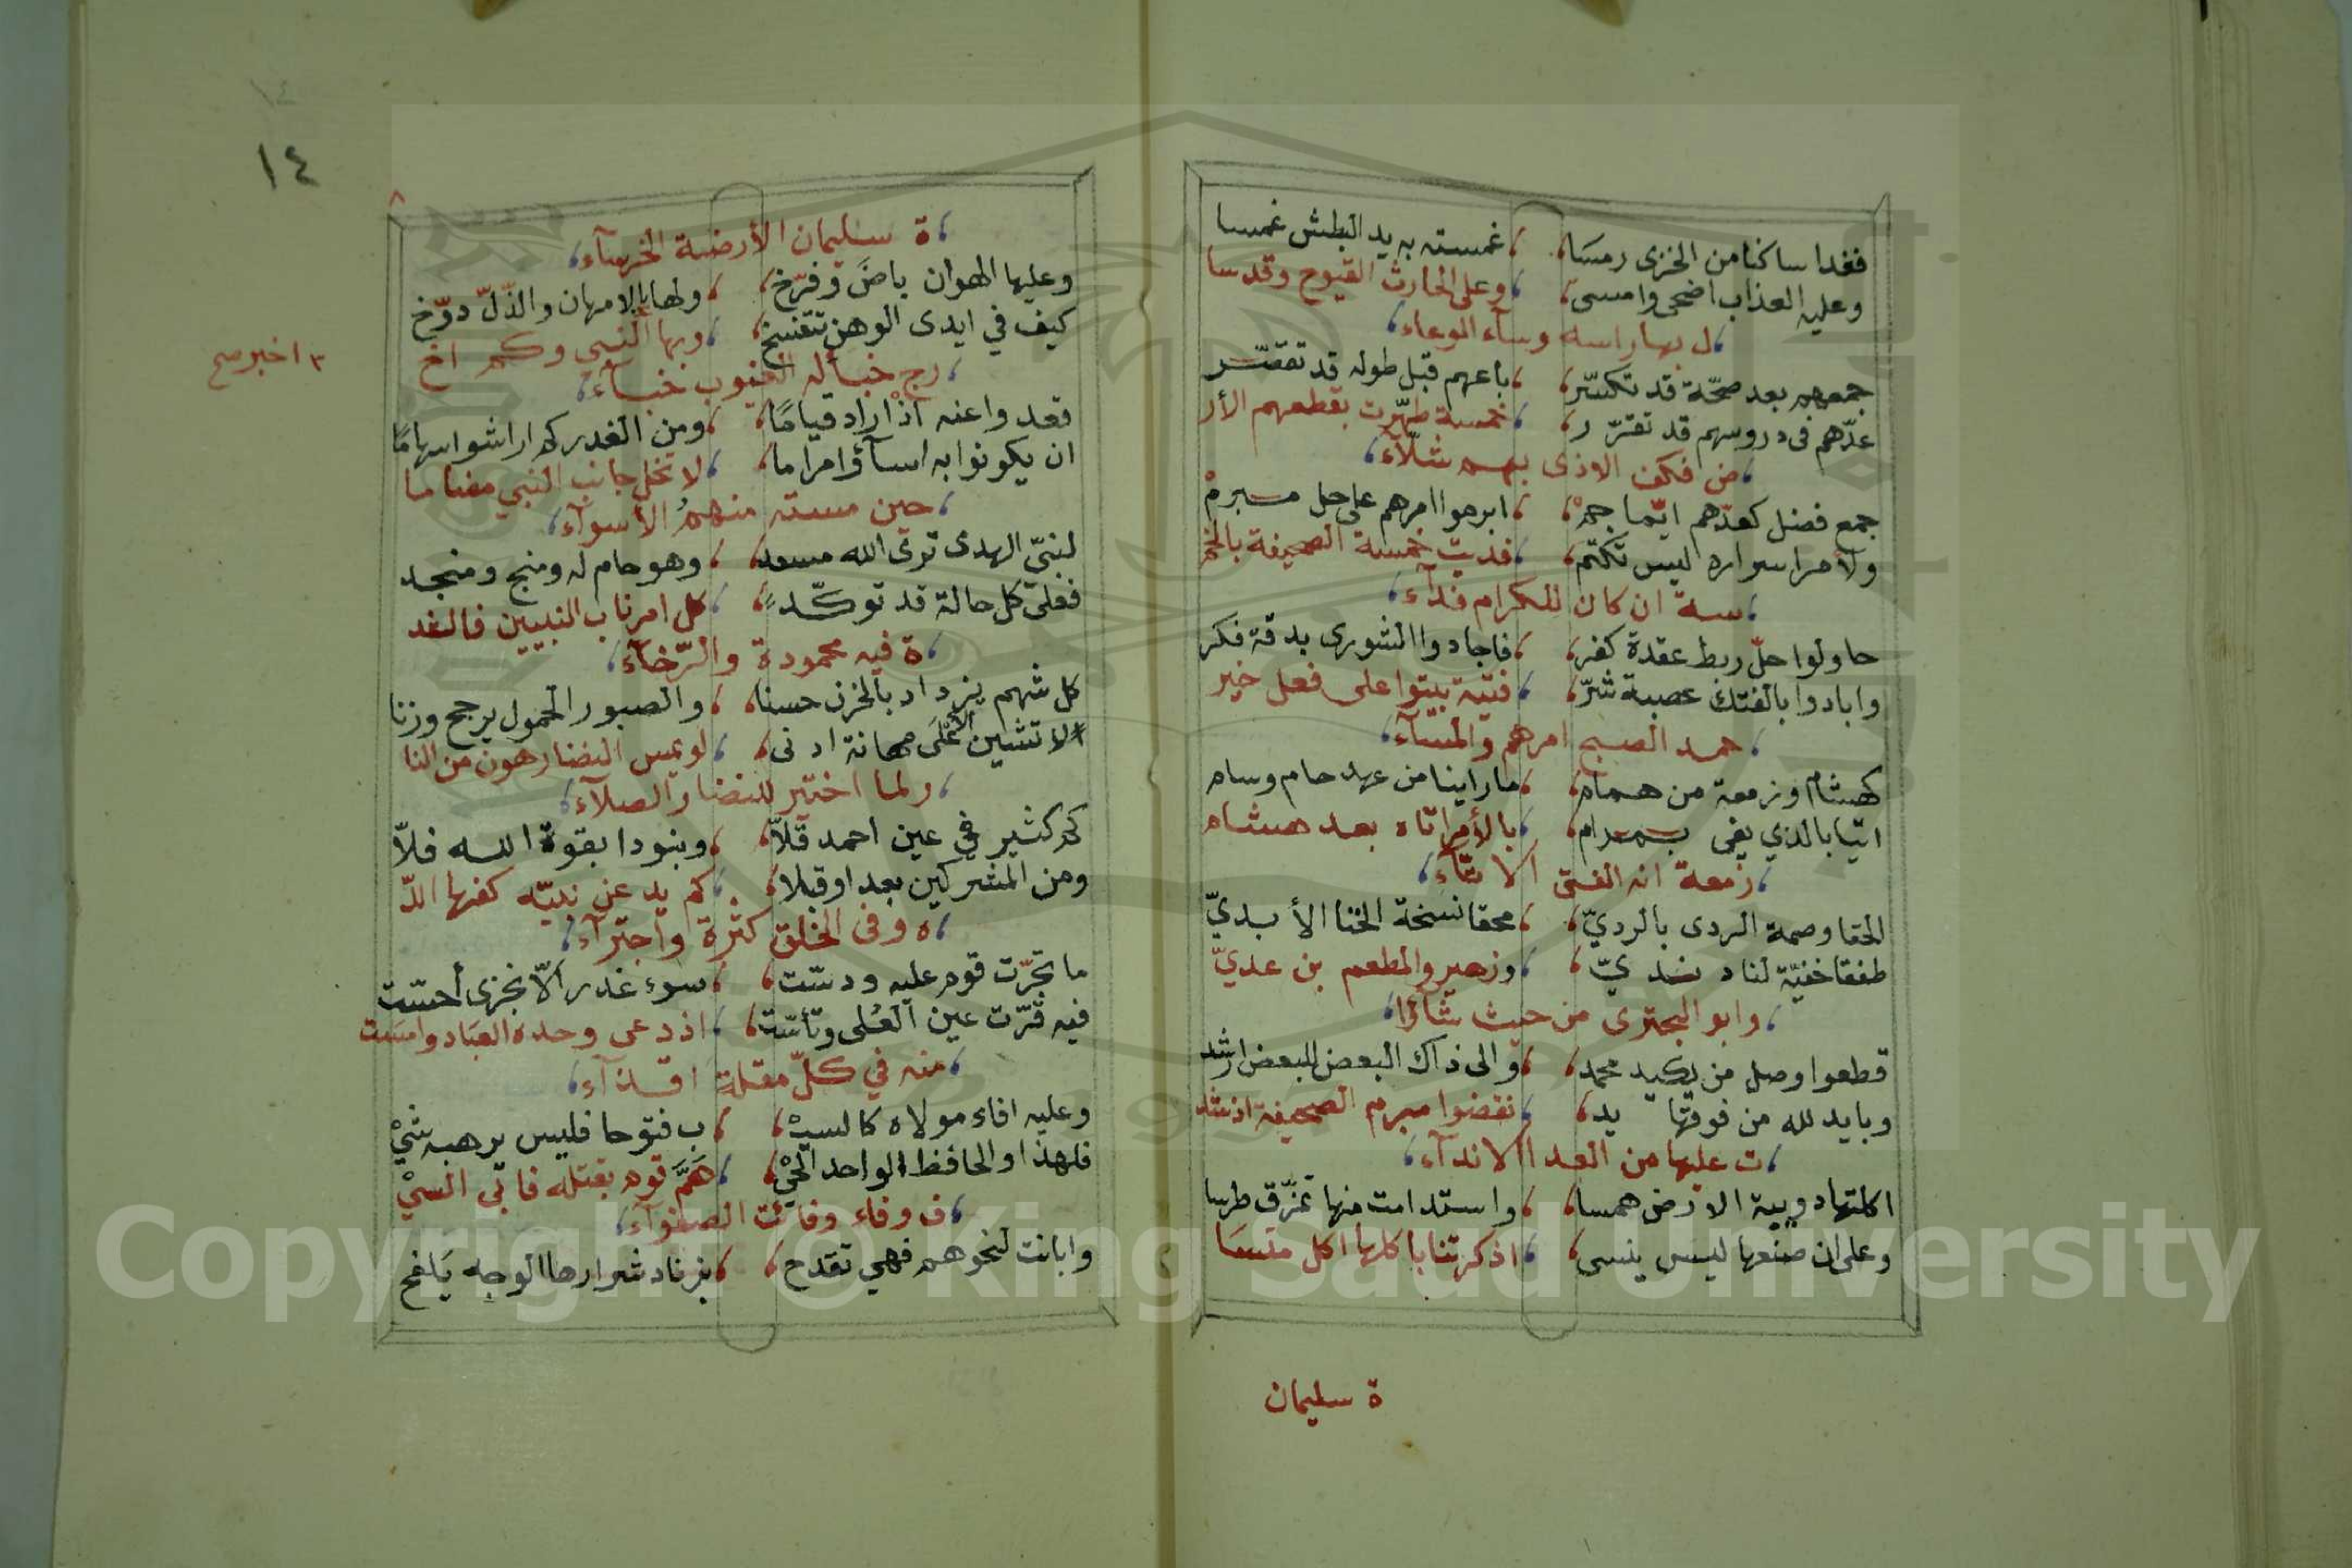 فغدا ساكنا من الخزى رمسا ، غمسته به يد البطش غمسا
وعليه العذاب اضحى وامسى ، وعلى الحارث القيوح وقد سا
، ل بها راسه وسآء الوعاء ،
جمعهم بعد صحّة قد تكسّر ، باعهم قبل طوله قد تقصّر
عدّهم فى دروسهم قد تقرّر ، خمسة طهّرت بقطعهم الأر
، ض فكف الاذى بهم شلّآء ،
جمع فضل كعدّهم ايّما جمْ ، ابرموا امرهم على حل مبرمْ
ولأمر اسراره ليس تكتم ، فديت خمسة الصحيفة بالخمْ
، سة ان كان للكرام فدآء ،
حاولوا حلّ ربط عقدة كفر ، فاجادوا الشورى بدقة فكر
وابادوا بالفتك عصبة شرّ ، فتية بيتوا على فعل خير
، حمد الصبح امرهم والمسآء ،
كهشام وزمعة من همام ، ما راينا من عهد حام وسام
اتيا بالذي يفى بمرام ، بالأمر اتاه بعد هشام
، زمعة انه الفتى الاتّآء ،
الحقا وصمة الردى بالرديّ ، محقا نسخة الخنا الأبديّ
طفقا خفيّة لناد نديّ ، وزهير والمطعم بن عديّ
، وابو البحترى من حيث شآؤا ،
قطعوا وصل من يكيد محمد ، والى ذاك البعض للبعض ارشد
وبايد لله من فوقها يد ، نقضوا مبرم الصحيفة اذ شد
، ت عليها من العدا الاندآء ،
اكلتها دويبة الارض همسا ، واستدامت منها تمزّق طرسا
وعلى ان صنعها ليس ينسى ، اذكرتنا باكلها اكل منسا
ة سليمان
١٤
٨
، ة سليمان الأرضة الخرسآء ،
وعليها الهوان باض وفرّخ ، ولها بالامهان والذّلّ دوّخ
كيف في ايدى الوهن تتفسخ ، وبها النبي وكم اخ
٢ اخبر صح
، رج خبأ له الغيوب خبآء ،
قعدوا عنه اذ اراد قياما ، ومن الغدر كم اراشوا سهامًا
ان يكونوا به اسآؤا مراما ، لا تخل جانب النبي مضاما
، حين مسته منهمُ الأسوآء ،
لنبيّ الهدى ترى الله مسعد ، وهو حام له ومنج ومنجد
فعلى كل حالة قد توكّد ، كل امر ناب النبيين فالشد
، ة فيه محمودة والرّخآء ،
كل شهم يزداد بالحزن حسنا ، والصبور الحمول يرجح وزنا
لا تشين الأعلى مهانة ادنى ، لو يمس النضار هون من النا
، ر لما اختير للنضار الصلآء ،
كم كثير في عين احمد قلّا ، وبنودا بقوة الله فلّا
ومن المشركين بعدا وقبلا ، كم يد عن نبيّه كفها اللّ
، ه وفى الخلق كثرة واجترآء ،
ما تجرّت قوم عليه ودسّت ، سوء غدر الّا بخزى أحسّت
فيه قرّت عين العُلى وتأسّت ، اذ دعى وحده العباد وامست
، منه في كلّ مقلة اقذآء ،
وعليه افاء مولاه كالسيْ ، ب فتوحا فليس يرهبه شيْ
فلهذا والحافظ الواحد الحيْ ، هَمَّ قوم بقتله فابى السيْ
، ف وفاء وفائت الصفوآء ،
وابانت لنحوهم فهي تقدح ، بزناد شرارها الوجه يَلفح
Copyright © King Saud University